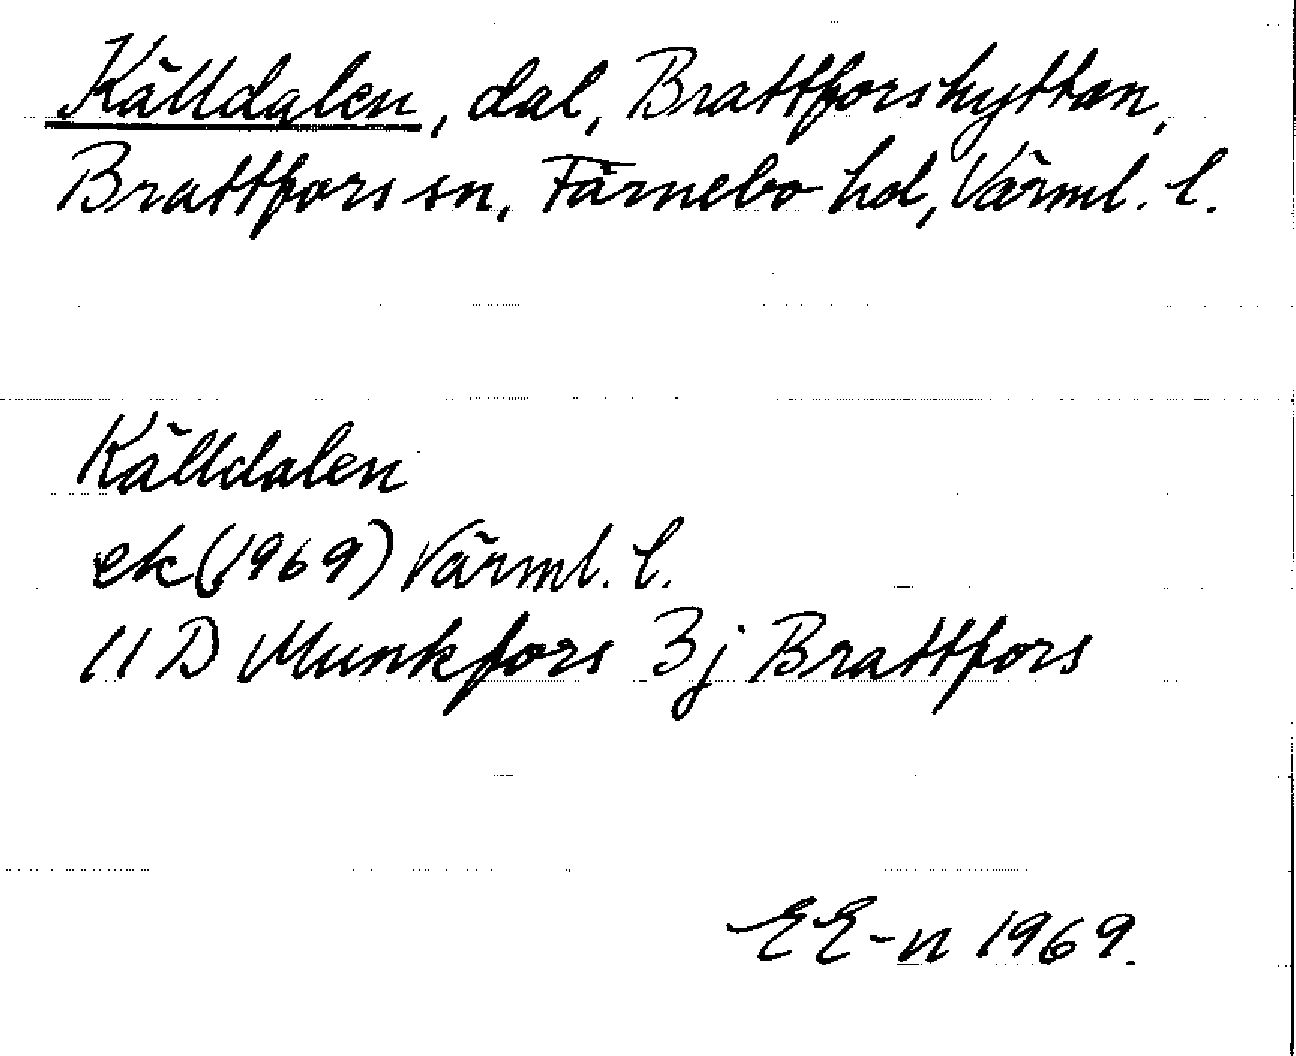 Källdalen, dal, Brattforshyttan,
Brattfors sn, Färnebo hd, Värml. l.
Källdalen
ek (1969) Värml. l.
11 D Munkfors 3j Brattfors
EE-n 1969.